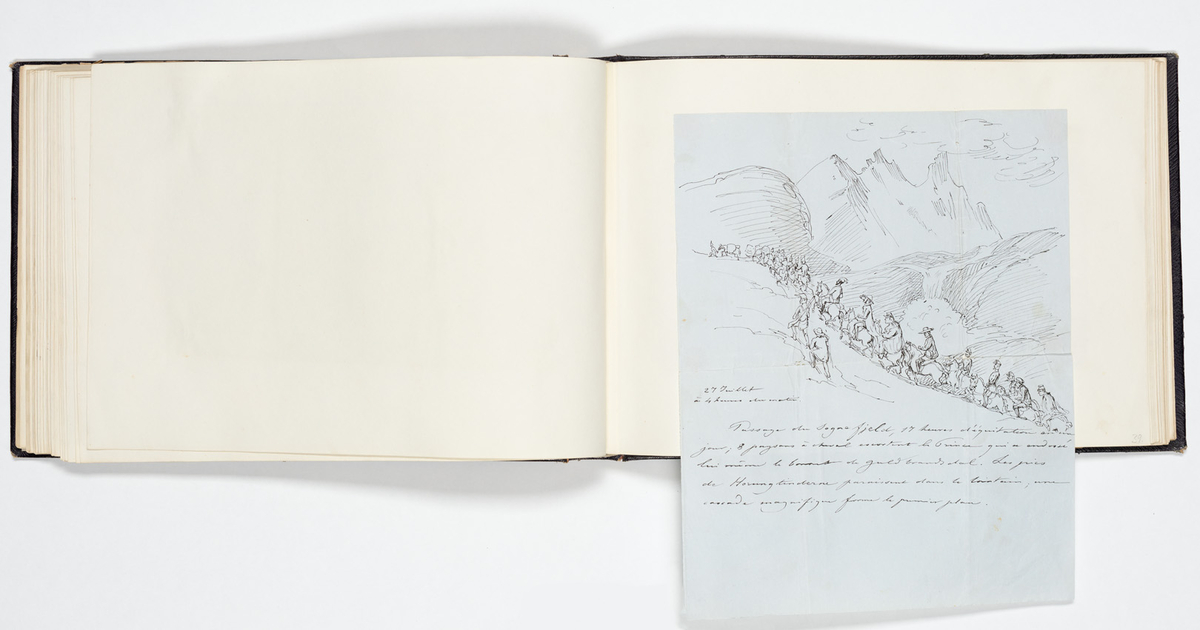 27 Juillet
à 4 heures du matin
Passage du Sogne fjeld, 17 heures d'équitation
jour, 8 paysans à cheval escortent le Prince qui a endossé
lui même le bonnet de Guldbrandsdal. Les pics
de Horungtinderne paraissent dans le lointain; une
cascade magnifique forme le premier plan.